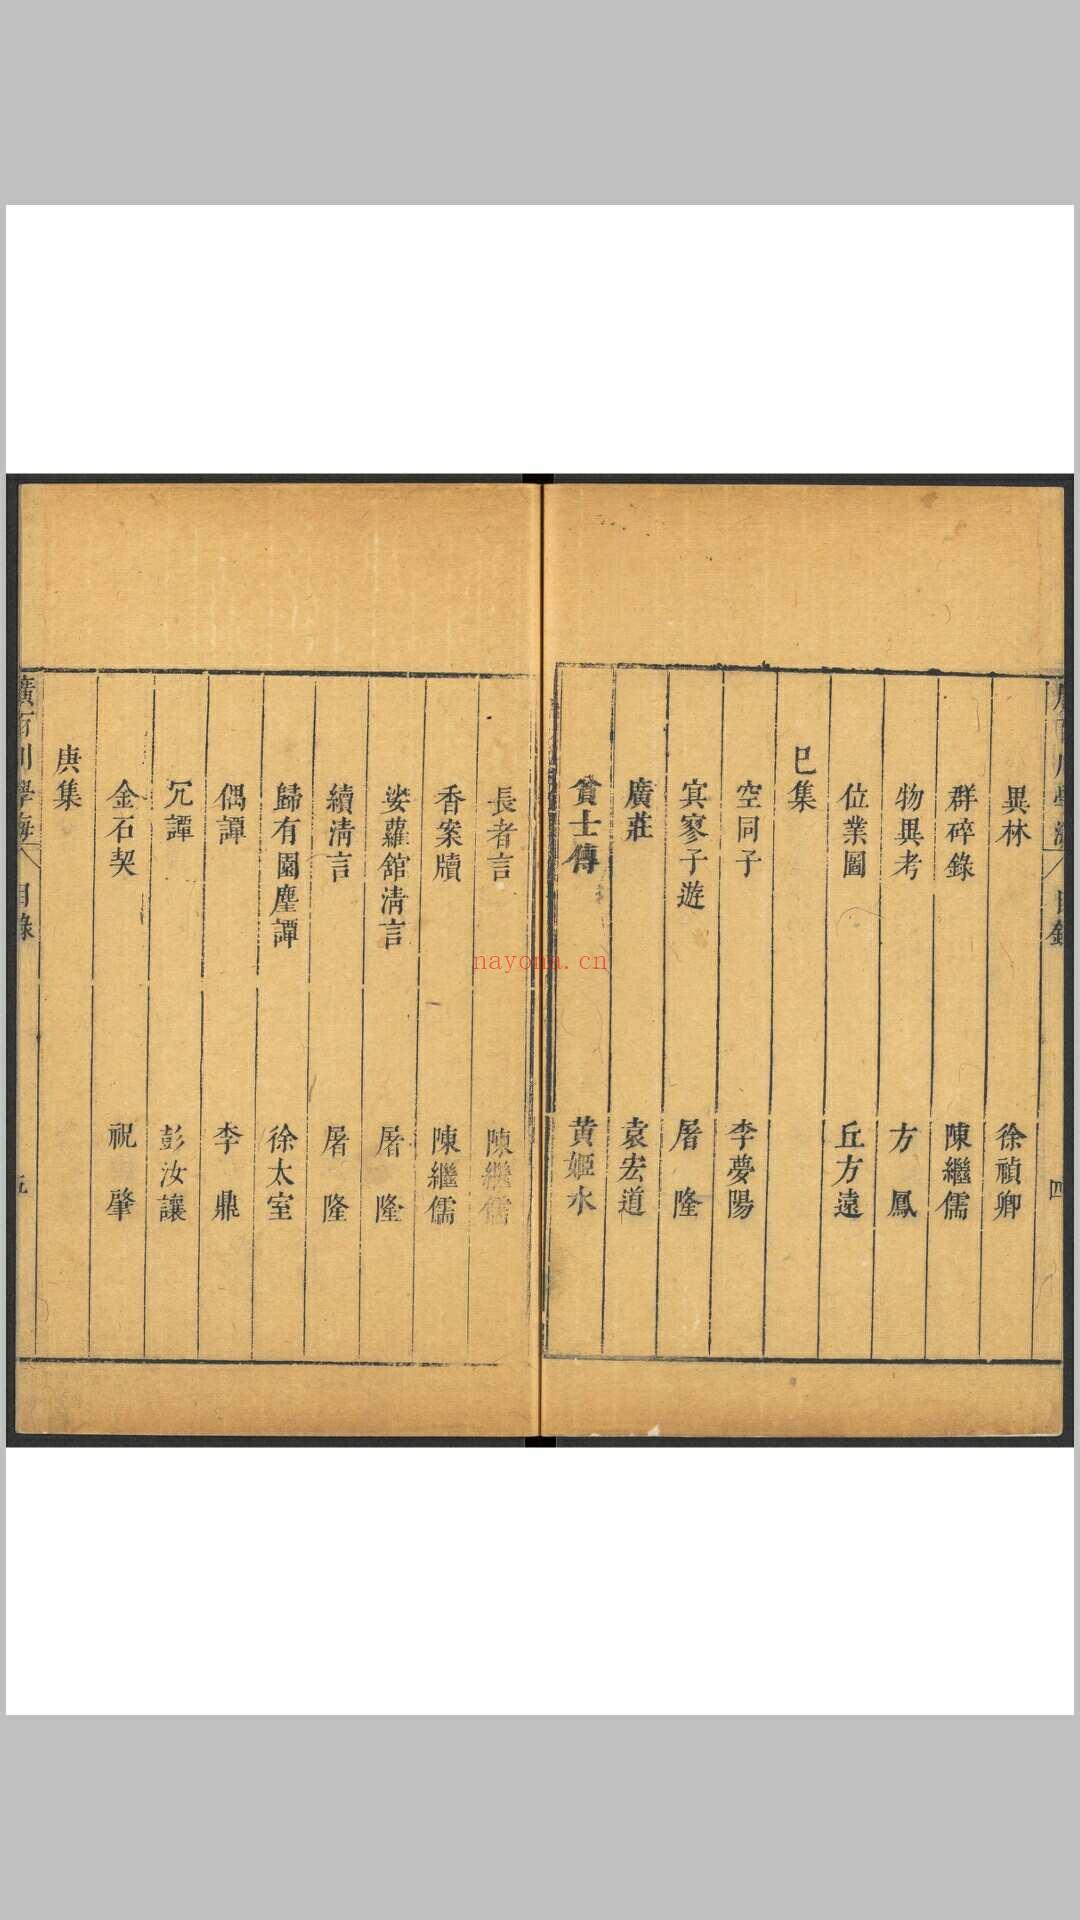 異林 徐禎卿
群碎錄 陳繼儒
物異考 方鳳
位業圖 丘方遠
巳集
空同子 李夢陽
㝠寥子遊 屠隆
廣莊 袁宏道
貧士傳 黄姬水
長者言 陳繼儒
香案牘 陳繼儒
娑蘿館清言 屠隆
續清言 屠隆
歸有園麈譚 徐太室
偶譚 李鼎
冗譚 彭汝讓
金石契 祝肇
庚集
廣百川學海 目錄
nayona.cn